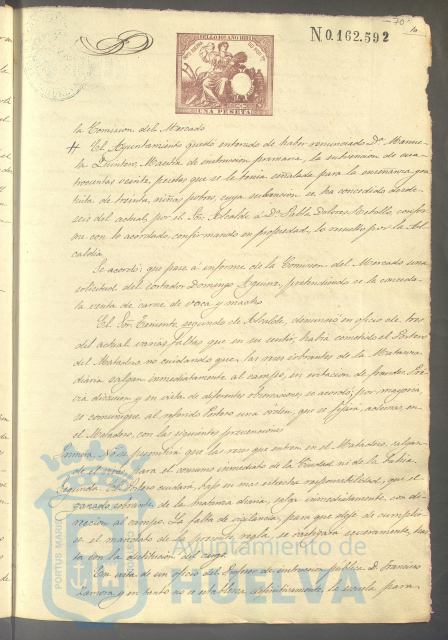 70
N 0.162.592
SELLO 10º AÑO
UNA PESETA
la Comision del Mercado
El Ayuntamiento quedó enterado de haber renunciado Dª Manue-
la Quintero, Maestra de instruccion primaria, la subvencion de cua-
trocientas veinte, pesetas que se le tenia señalada para la enseñanza gra-
tuita de treinta niñas pobres, cuya subvencion se ha concedido desde
seis del actual, por el Sor Alcalde á Dª Dolores
con lo acordado, confirmando en propiedad, lo resuelto por la Al-
caldia.
Se acordó: que pase á informe de la Comision del Mercado una
solicitud del cortador Domingo pretendiendo se le conceda
la venta de carne de vaca y macho
El Sor Teniente segundo de Alcalde, denunció en oficio de tres
del actual varias faltas que en su sentir, habia cometido el Portero
del Matadero no cuidando que las reses sobrantes de la Matanza
diaria salgan inmediatamente al campo, en evitacion de fraudes. Pre-
via discusion y en vista de diferentes observaciones se acordó; por mayoria
se comunique al referido Portero una orden, que se fijará, ademas, en
el Matadero, con las siguientes prevenciones
Primera. No se permitirá que las reses que entren en el Matadero, salgan
de él para el consumo inmediato de la Ciudad ni de la bahia
Segunda. El Portero cuidará, bajo su mas estrecha responsabilidad, que el
ganado sobrante de la matanza diaria, salga inmediatamente, con di-
reccion al campo. La falta de vigilancia, para que deje de cumplir-
se el mandato de la presente regla, se castigará severamente, has-
ta con la destitucion del cargo
Con vista de un oficio del Profesor de instruccion pública D. Francisco
Zamora y en tanto no se establezca definitivamente, la escuela para
PORTUS MARIS
Ayuntamiento de
HUELVA